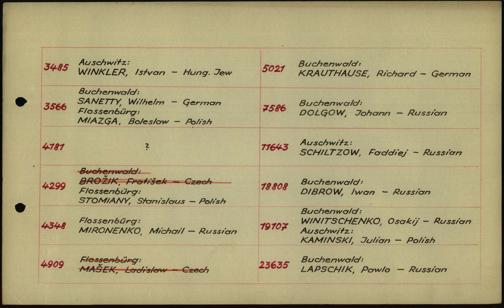 3485 Auschwitz:
WINKLER, Istvan – Hung. Jew
3566 Buchenwald:
SANETTY, Wilhelm – German
Flossenbürg:
MIAZGA, Boleslaw – Polish
4181 ?
4299 Buchenwald:
BROŽIK, František – Czech
Flossenbürg:
STOMIANY, Stanislaus – Polish
4348 Flossenbürg:
MIRONENKO, Michail – Russian
4909 Flossenbürg:
MAŠEK, Ladislaw – Czech
5021 Buchenwald:
KRAUTHAUSE, Richard – German
7586 Buchenwald:
DOLGOW, Johann – Russian
11643 Auschwitz:
SCHILTZOW, Faddiej – Russian
18808 Buchenwald:
DIBROW, Iwan – Russian
19107 Buchenwald:
WINITSCHENKO, Osakij – Russian
Auschwitz:
KAMINSKI, Julian – Polish
23635 Buchenwald:
LAPSCHIK, Pawlo – Russian